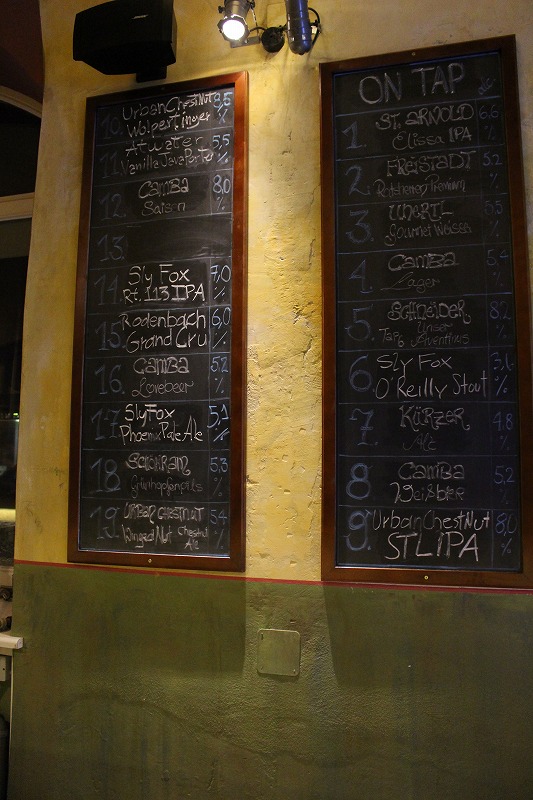 10. Urban Chestnut 8,5
Wolpertinger %
11. Atwater 5,5
Vanilla Java Porter %
12. Camba 8,0
Saison %
13.
14. Sly Fox 7,0
Rt. 113 IPA %
15. Rodenbach 6,0
Grand Cru %
16. Camba 5,2
Lovebeer %
17. Sly Fox 5,1
Phoenix Pale Ale %
18. Schönram 5,3
Grünhopfenpils %
19. Urban Chestnut 5,4
Winged Nut Chestnut Ale %
ON TAP
1. St. ARNOLD 6,6
Elissa IPA %
2. FREISTADT 5,2
%
3. UNERTL 5,5
Gourmet Weisse %
4. Camba 5,4
Lager %
5. Schneider 8,2
Tap 6 Unser Aventinus %
6. Sly Fox 3,6
O'Reilly Stout %
7. Kürzer 4,8
Alt %
8. Camba 5,2
Weißbier %
9. Urban ChestNut 8,0
STL IPA %